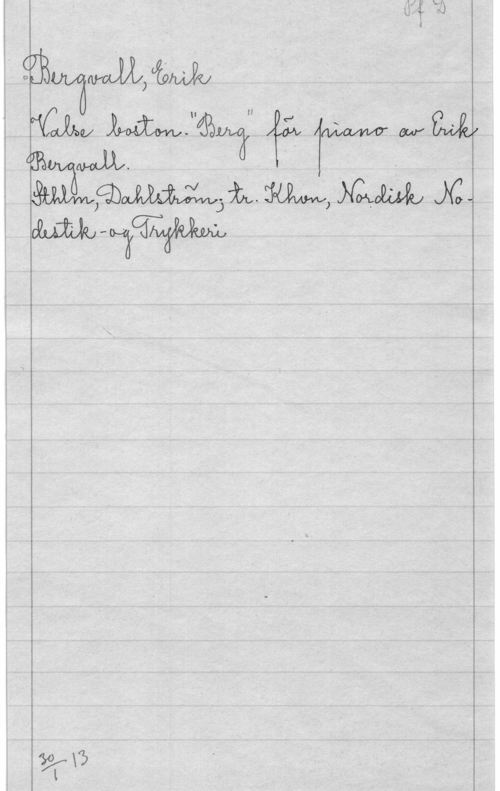 Pf D
Bergvall, Erik
Valse boston. "Berg" för piano av Erik
Bergvall.
Sthlm, Dahlström; tr. Khvn, Nordisk No-
destik-og Trykkeri
30/1 13